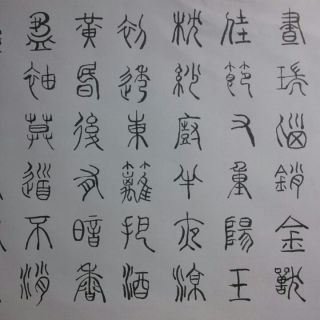 晝瑞腦銷金獸
佳節又重陽玉
枕紗廚半夜涼
初透東籬把酒
黃昏後有暗香
盈袖莫道不消